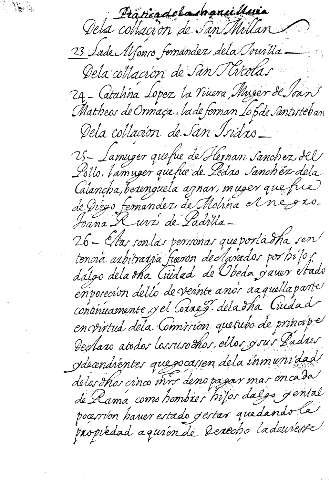 Dela collación de San Millan
23 La de Alfonso fernandez dela
Dela collación de San Nicolas
24 - Catalina Lopez la Viuera, Muger de Iuan
Matheos de Ormaça, la de fernan Lopez de Santisteban
Dela collaçion de San Isidro
25 - La muger que fue de Hernan Sanchez del
Pollo, la muger que fue de Pedro Sanchez dela
Calancha, berenguela aznar, muger que fue
de Diego fernandez de Molina el negro
Joana Ruiz de Padilla
26 - Estas son las personas que por la dha sen
tencia arbitraria fueron declarados por hijos
dalgo dela dha Ciudad de Ubeda y aver estado
en posecion dello de veinte años a aquella parte
continuamente y el Correg.r dela dha Ciudad
en virtud dela Comisión que tubo de principe
declaro a todos los susodhos, ellos y sus Padres
y descendientes que gocassen dela inmunidad
de los dhos cinco mrs de no pagar mas en cada
de Rama como hombres hijos dalgo y en tal
possession haver estado y estar quedando la
propiedad a quien de derecho la deviesse